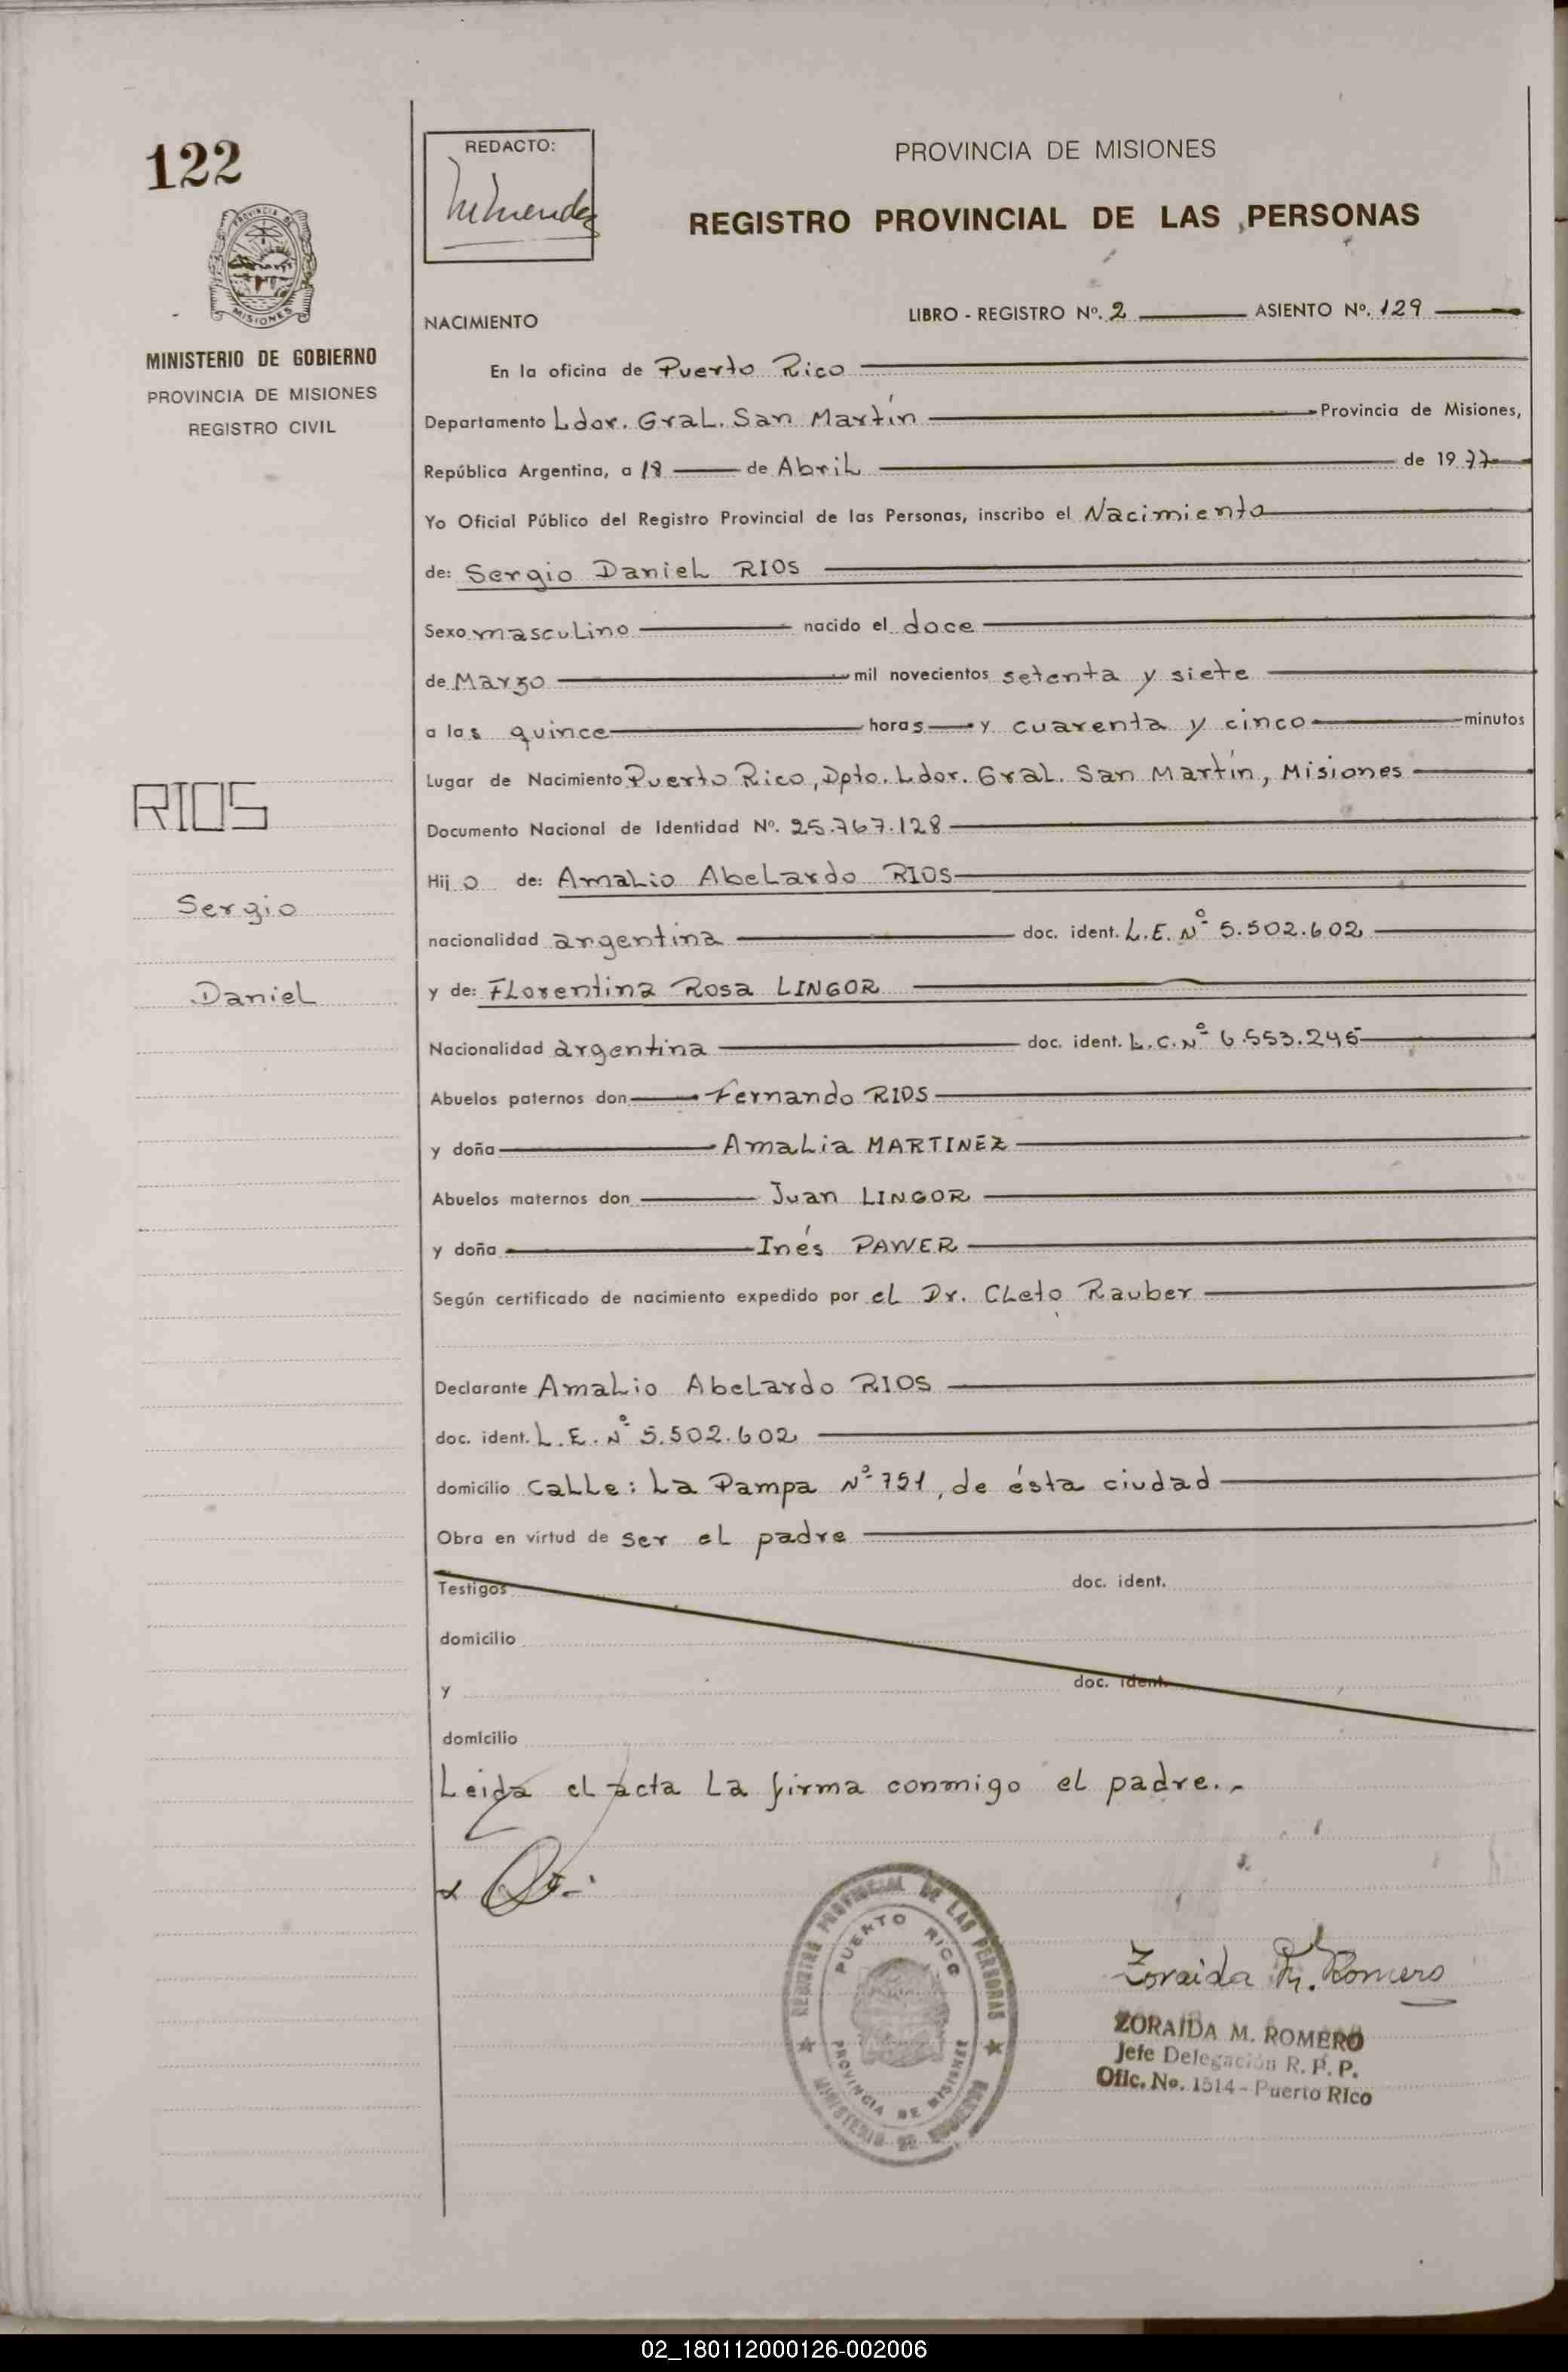 122
REDACTO:
PROVINCIA DE MISIONES
REGISTRO PROVINCIAL DE LAS PERSONAS
MISIONES
MINISTERIO DE GOBIERNO
PROVINCIA DE MISIONES
REGISTRO CIVIL
NACIMIENTO
LIBRO - REGISTRO Nº. 2 ASIENTO Nº. 129
En la oficina de Puerto Rico
Departamento Ldor. Gral. San Martín Provincia de Misiones,
República Argentina, a 18 de Abril de 1977
Yo Oficial Público del Registro Provincial de las Personas, inscribo el Nacimiento
de: Sergio Daniel RIOS
Sexo masculino nacido el doce
de Marzo mil novecientos setenta y siete
a las quince horas y cuarenta y cinco minutos
Lugar de Nacimiento Puerto Rico, Dpto. Ldor. Gral. San Martín, Misiones
RIOS
Documento Nacional de Identidad Nº. 25.767.128
Hijo de: Amalio Abelardo RIOS
Sergio
nacionalidad argentina doc. ident. L.E. Nº 5.502.602
Daniel
y de: Florentina Rosa LINGOR
Nacionalidad argentina doc. ident. L.C. Nº 6.553.245
Abuelos paternos don Fernando RIOS
y doña Amalia MARTINEZ
Abuelos maternos don Juan LINGOR
y doña Inés PAWER
Según certificado de nacimiento expedido por el Dr. Cleto Rauber
Declarante Amalio Abelardo RIOS
doc. ident. L.E. Nº 5.502.602
domicilio Calle: La Pampa Nº 751, de ésta ciudad
Obra en virtud de ser el padre
Testigos doc. ident.
domicilio
y doc. ident.
domicilio
Leida el acta la firma conmigo el padre.-
REGISTRO PROVINCIAL DE LAS PERSONAS
PUERTO RICO
PROVINCIA DE MISIONES
MINISTERIO DE GOBIERNO
Zoraida M. Romero
ZORAIDA M. ROMERO
Jefe Delegación R. P. P.
Ofic. No. 1514 - Puerto Rico
02_180112000126-002006